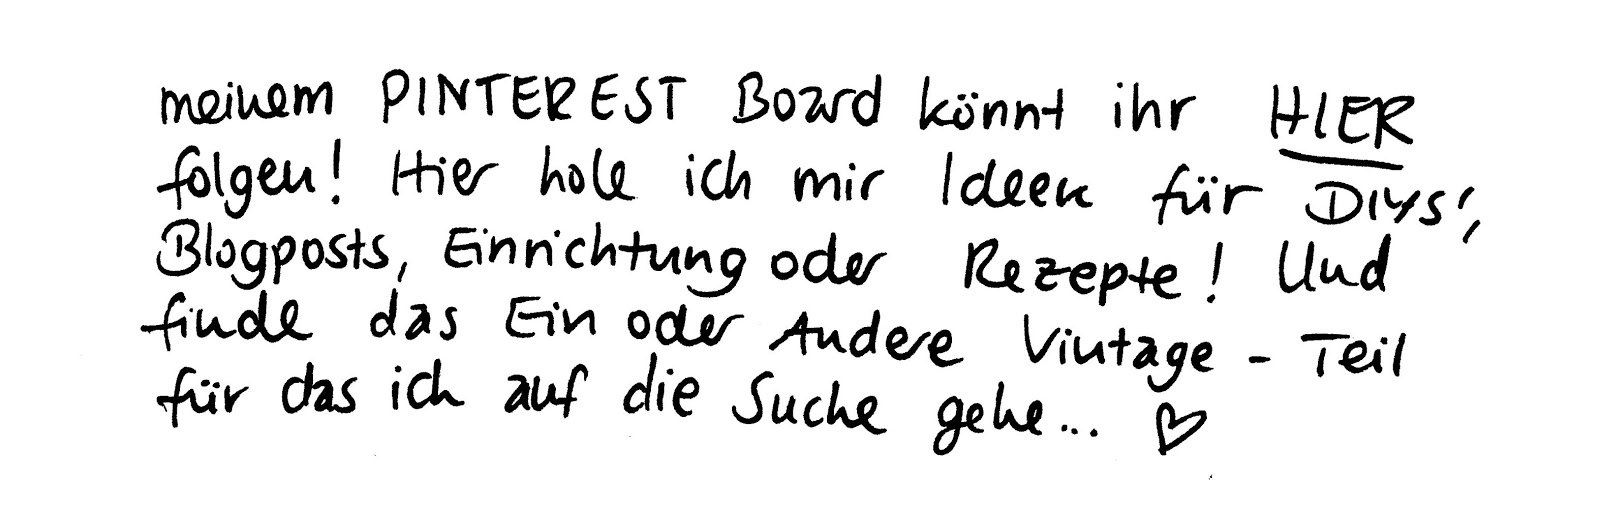 meinem PINTEREST Board könnt ihr HIER
folgen! Hier hole ich mir Ideen für DIYs',
Blogposts, Einrichtung oder Rezepte! Und
finde das Ein oder Andere Vintage - Teil
für das ich auf die Suche gehe... ♡